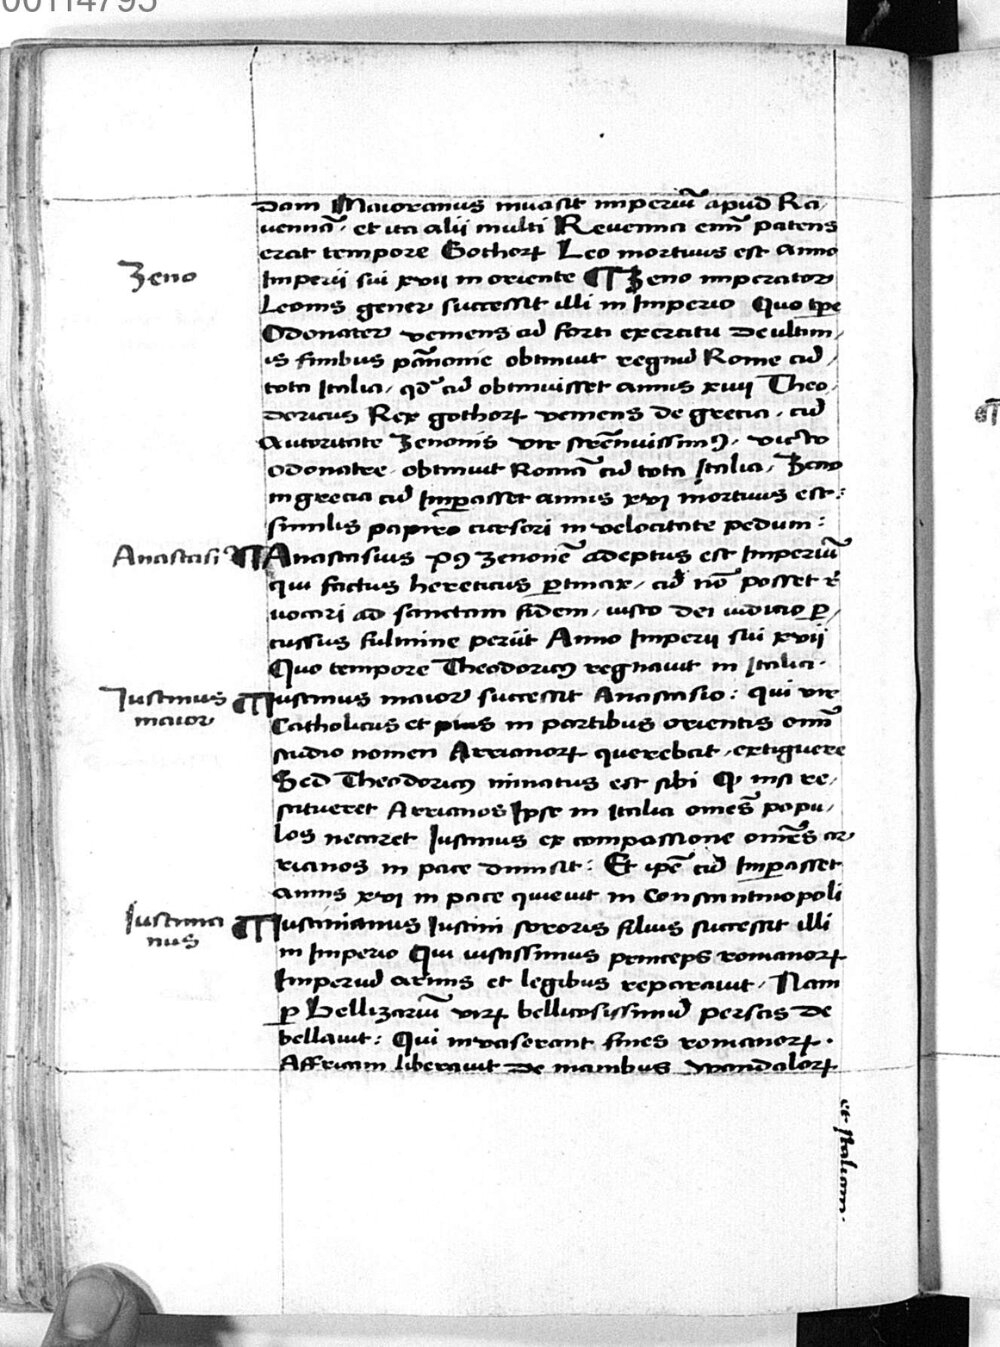 00114795
dam Maioranus inuasit imperiū apud Ra,
uennā, et ita alii multi Reuenna enī patens
erat tempore Gothorꝝ Leo mortuus est anno
Imperii sui xvii in oriente ¶ Zeno imperator
Zeno
Leonis gener successit illi in Imperio Quo tꝑe
Odonater veniens cū forti exercitu de ultim,
is finibus pānonie obtinuit regnū Rome cū,
tota Italia, qd cū obtinuisset annis xiiii Theo,
doricus Rex gothorꝝ veniens de grecia, cū
Autoritate Zenonis vir strēnuissimꝰ, victo
odonatre, obtinuit Romā cū tota Italia, Zeno
in grecia cū Imꝑasset annis xvi mortuus est:
similis cursori in velocitate pedum:
Anastasi
¶ Anastasius pꝰ zenonē adeptus est Imperiū
qui factus hereticus ꝑtinax, cū nō posset re
uocari ad sanctam fidem, iusto dei iudicio ꝑ,
cussus fulmine periit Anno Imperii sui xvii
Quo tempore Theodoricꝰ regnauit in Italia.
Iustinus
maior
¶ Iustinus maior successit Anastasio: qui vir
Catholicus et pius in partibus orientis omī
studio nomen Arrianorꝝ querebat, extiguere
Sed Theodoricꝰ minatus est sibi ꝙ nisi re,
stitueret Arrianos Ipse in Italia omēs popu,
los necaret Iustinus ex compassione omēs ar
rianos in pace dimisit: Et ipē cū Imꝑasset
annis xvi in pace quieuit in Constantinopoli
Iustinia
nus
¶ Iustinianus Iustini sororis filius successit illi
in Imperio Qui iustissimus princeps romanorꝝ
Imperiū armis et legibus reparauit, Nam
ꝑ Bellizariū virꝝ bellicosissimū persas de
bellauit: Qui inuaserant fines romanorꝝ.
Affricam liberauit de manibus Wandalorꝝ
et Italiam.